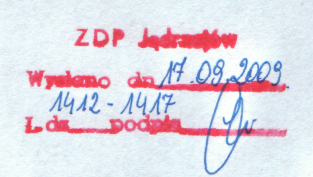 ZDP Jędrzejów
Wysłano dn 17.09.2009.
1412-1417
L.dz. podpis